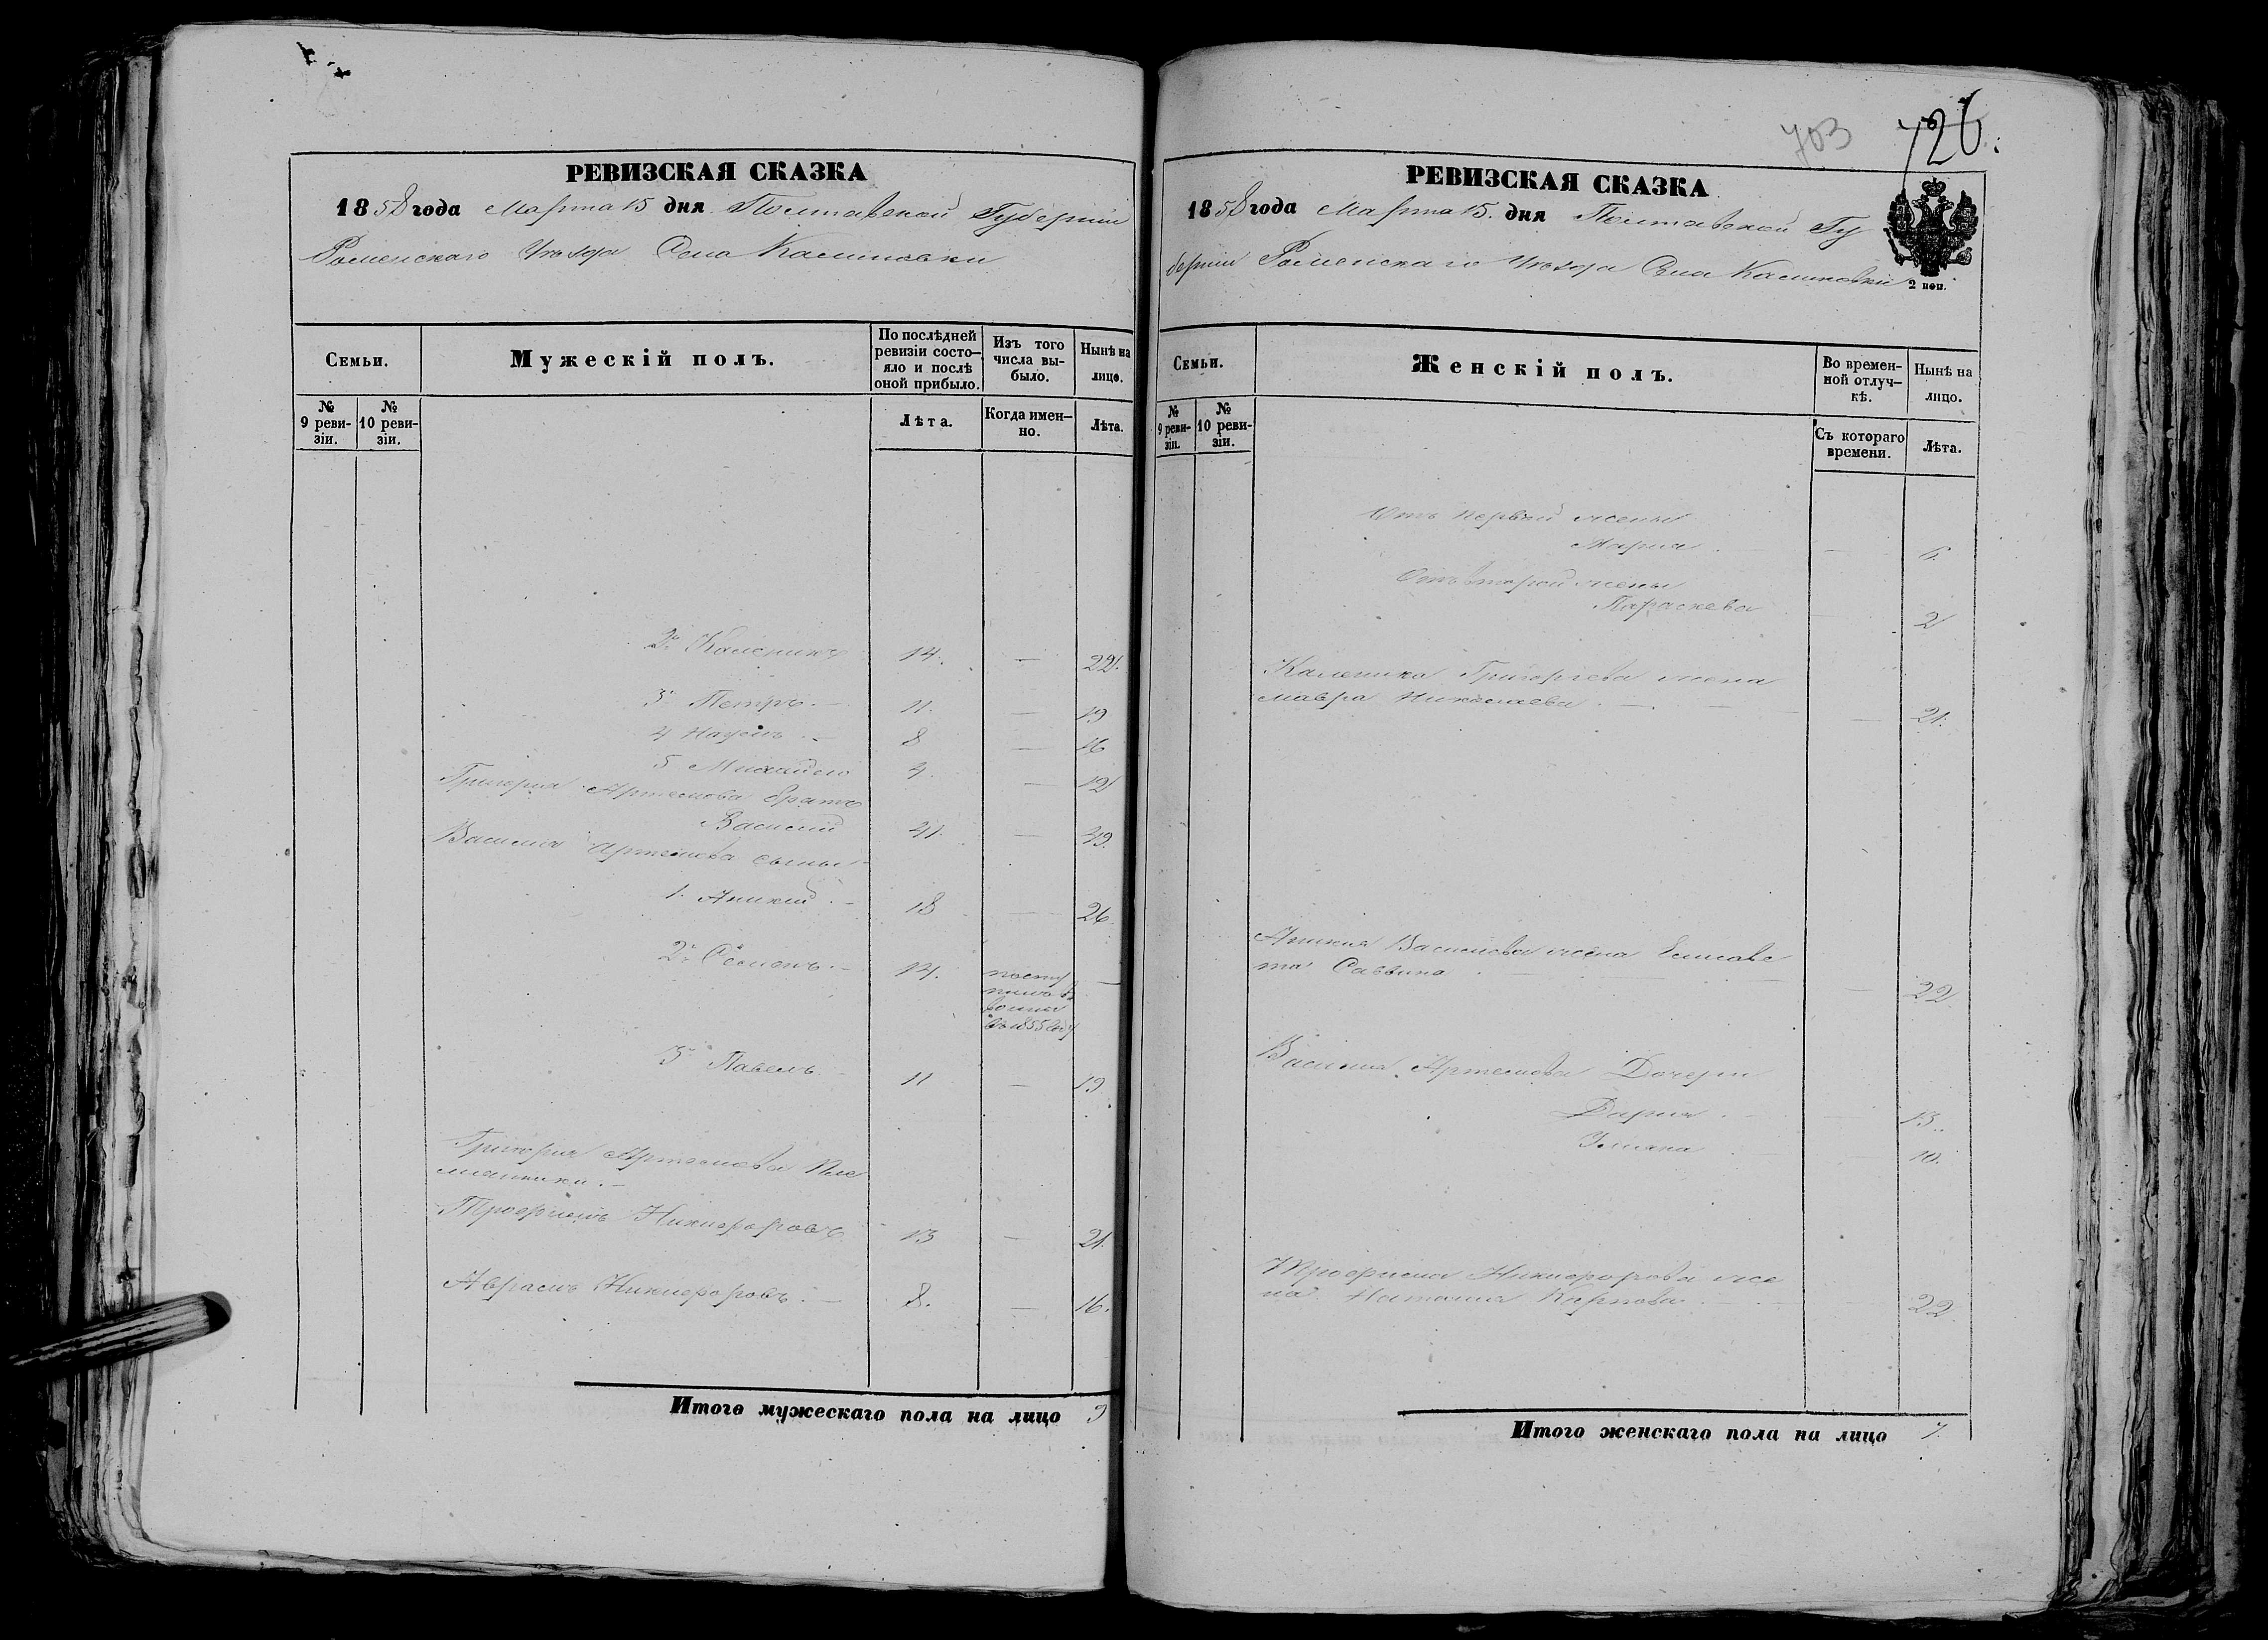 РЕВИЗСКАЯ СКАЗКА
1858 года Марта 15 дня Полтавской Губернии
Роменскаго Уѣзда Села Калиновки
Семьи.
Мужескій полъ.
По послѣдней ревизіи состо-
яло и послѣ оной прибыло.
Изъ того числа вы-
было.
Нынѣ на лицо.
№ 9 реви-
зіи.
№ 10 реви-
зіи.
Лѣта.
Когда имен-
но.
Лѣта.
2й Каленикъ 14. — 22.
3й Петръ. — 11. — 19
4 Наумъ. — 8 — 16
5 Михайло 4. — 12
Григорія Артемова братъ
Василій 41. — 49.
Василія Артемова сыны
1. Аникій. — 18 — 26.
2й Семенъ. — 14. посту
пилъ въ
воины
въ 1855 году —
3й Павелъ. 11 — 19
Григорія Артемова Пле
мянники. —
Трофимъ Никифоровъ 13 — 21.
Аврамъ Никифоровъ. — 8. — 16.
Итого мужескаго пола на лицо 9
703 726.
РЕВИЗСКАЯ СКАЗКА
1858 года Марта 15. дня Полтавской Гу
берніи Роменскаго Уѣзда Села Калиновки
2 коп.
Семьи.
Женскій полъ.
Во времен-
ной отлуч-
кѣ.
Нынѣ на лицо.
№ 9 реви-
зіи.
№ 10 реви-
зіи.
Съ котораго времени.
Лѣта.
Отъ первой жены
Марія. — 6.
Отъ второй жены
Параскева 2
Каленика Григорьева жена
Мавра Николаева. — 21.
Аникія Васильева жена Елисаве
та Саввина — 22
Василія Артемова Дочери
Дарія. 13.
Улияна 10.
Трофима Никифорова же
на Наталия Карпова. — 22.
Итого женскаго пола на лицо 7.